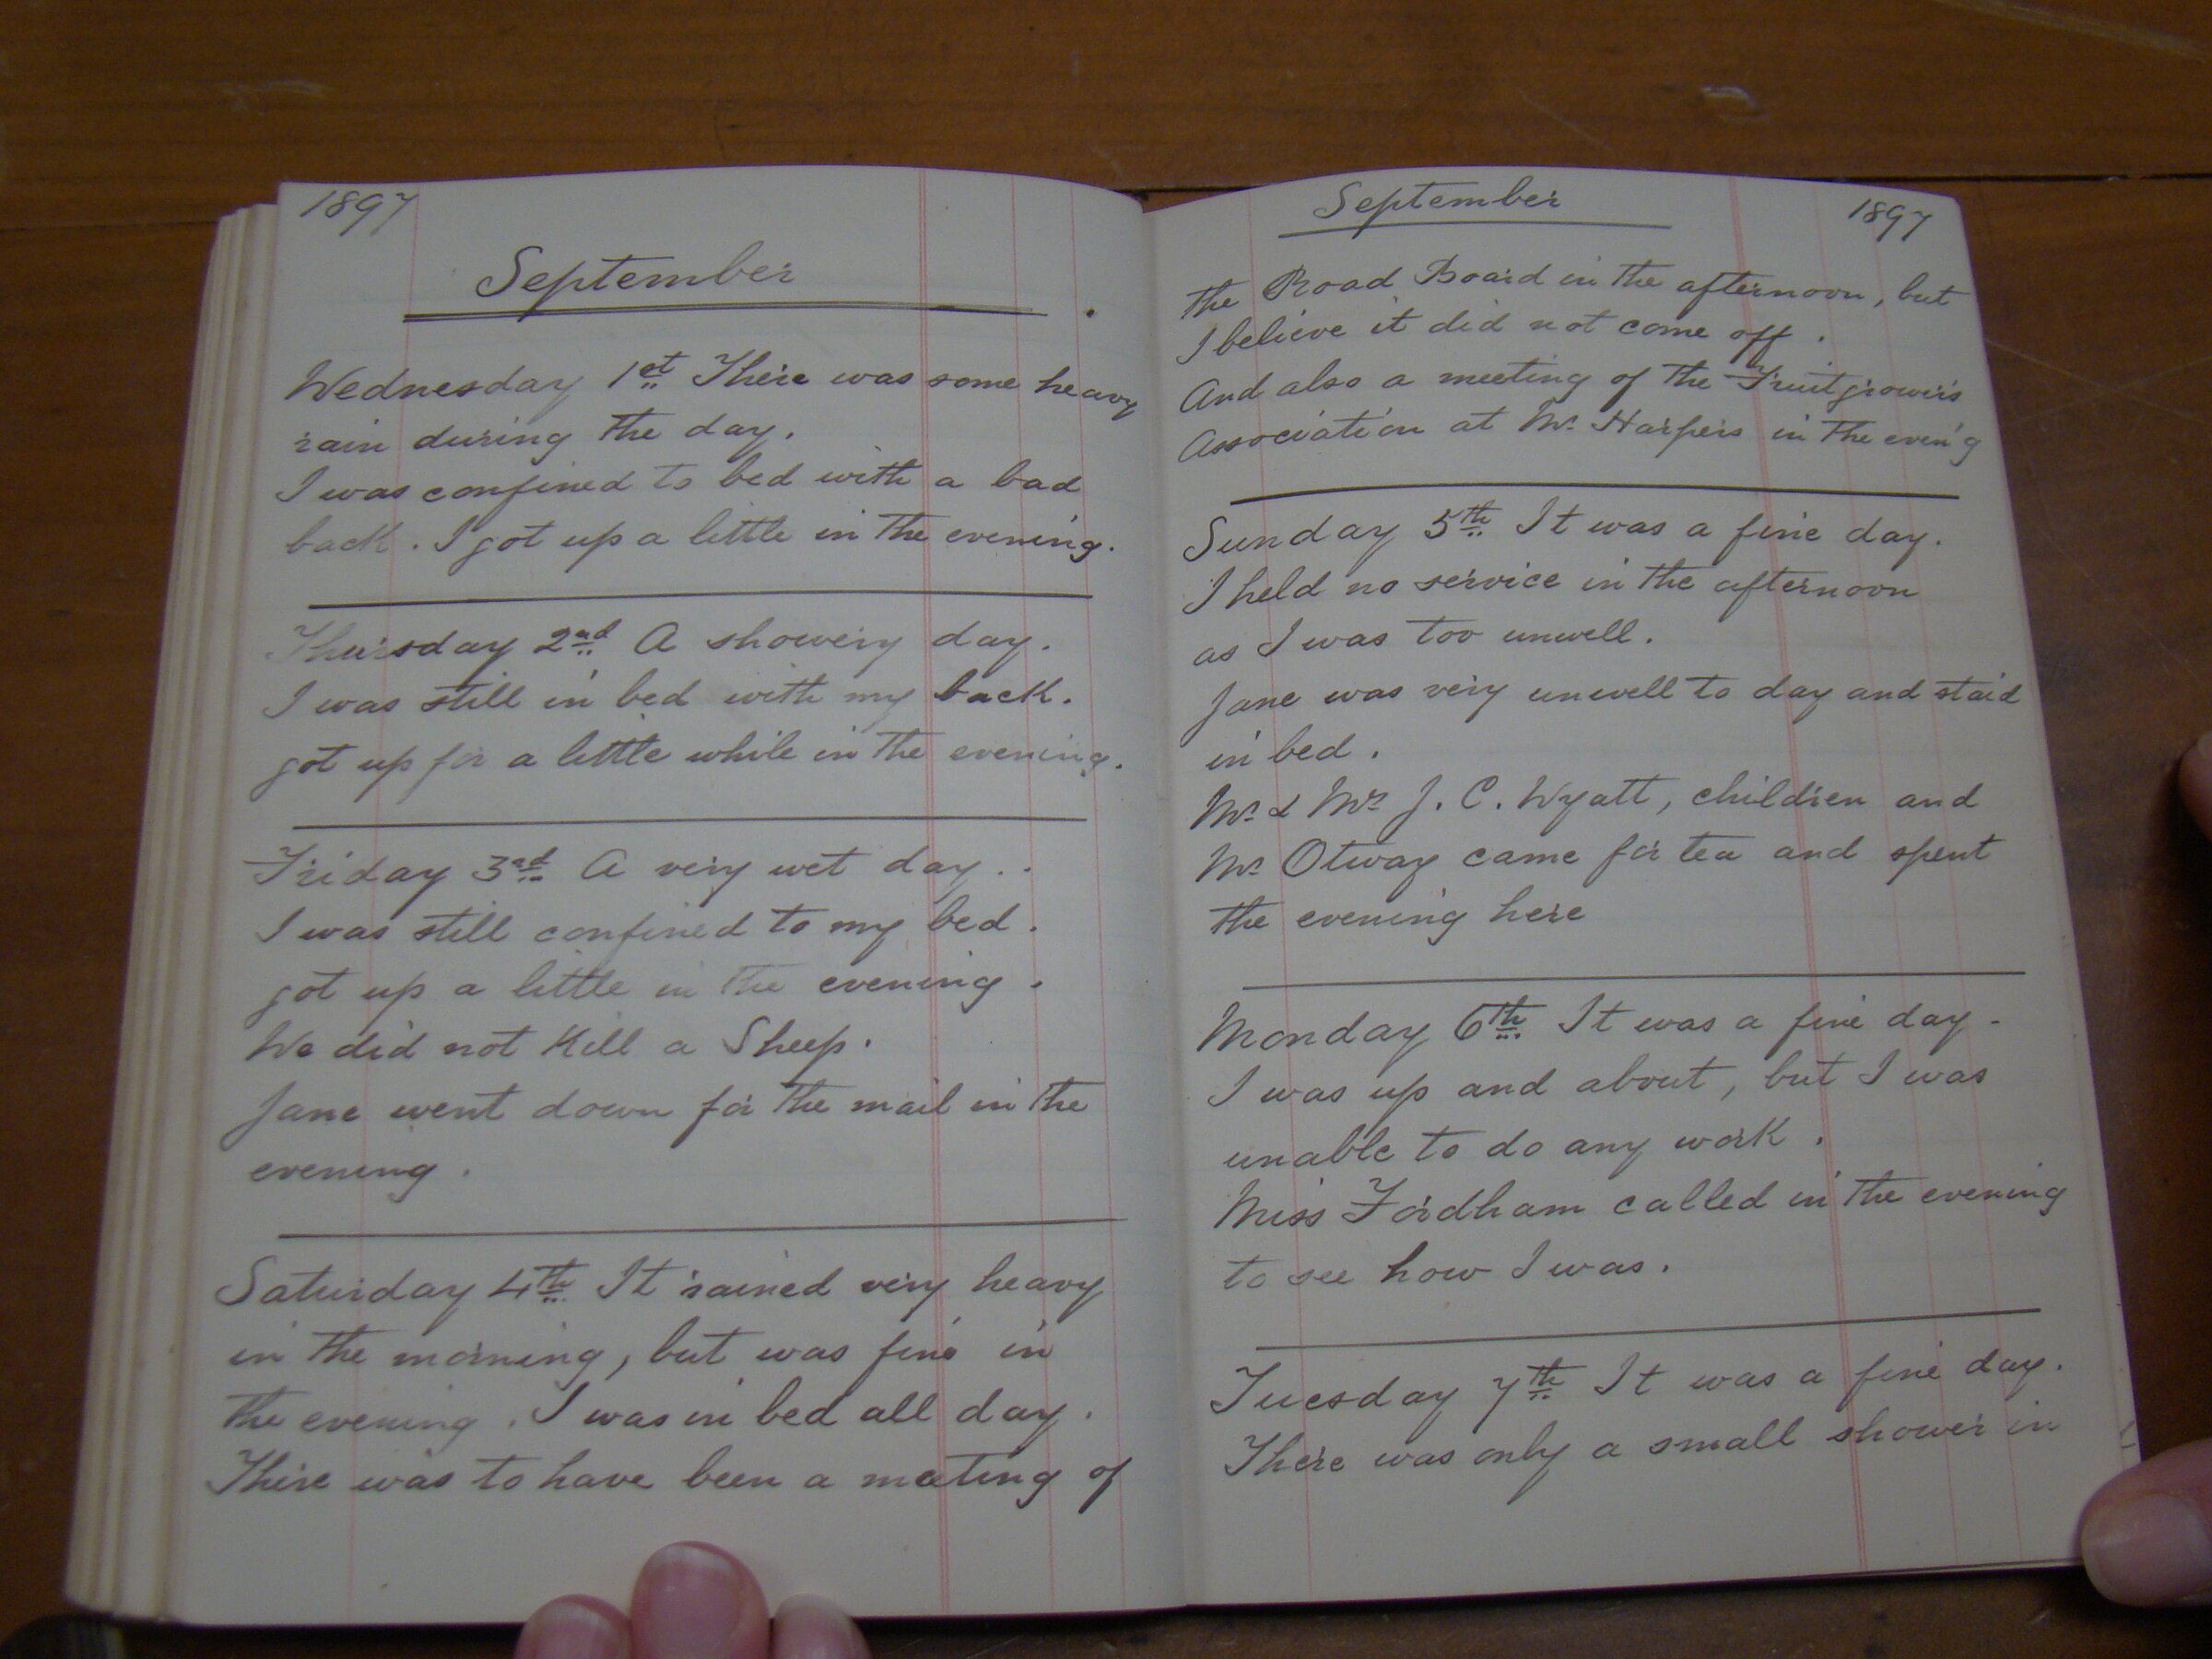 1897
September
Wednesday 1st There was some heavy
rain during the day.
I was confined to bed with a bad
back. I got up a little in the evening.
Thursday 2nd A showery day.
I was still in bed with my back.
got up for a little while in the evening.
Friday 3rd A very wet day..
I was still confined to my bed.
got up a little in the evening.
We did not Kill a Sheep.
Jane went down for the mail in the
evening.
Saturday 4th It rained very heavy
in the morning, but was fine in
the evening. I was in bed all day.
There was to have been a meeting of
September 1897
the Road Board in the afternoon, but
I believe it did not come off.
And also a meeting of the Fruitgrowers
Association at Mr. Harpers in the even'g
Sunday 5th It was a fine day.
I held no service in the afternoon
as I was too unwell.
Jane was very unwell to day and staid
in bed.
Mr. & Mrs J. C. Wyatt, children and
Mr Otway came for tea and spent
the evening here
Monday 6th It was a fine day-
I was up and about, but I was
unable to do any work.
Miss Fordham called in the evening
to see how I was.
Tuesday 7th It was a fine day.
There was only a small shower in